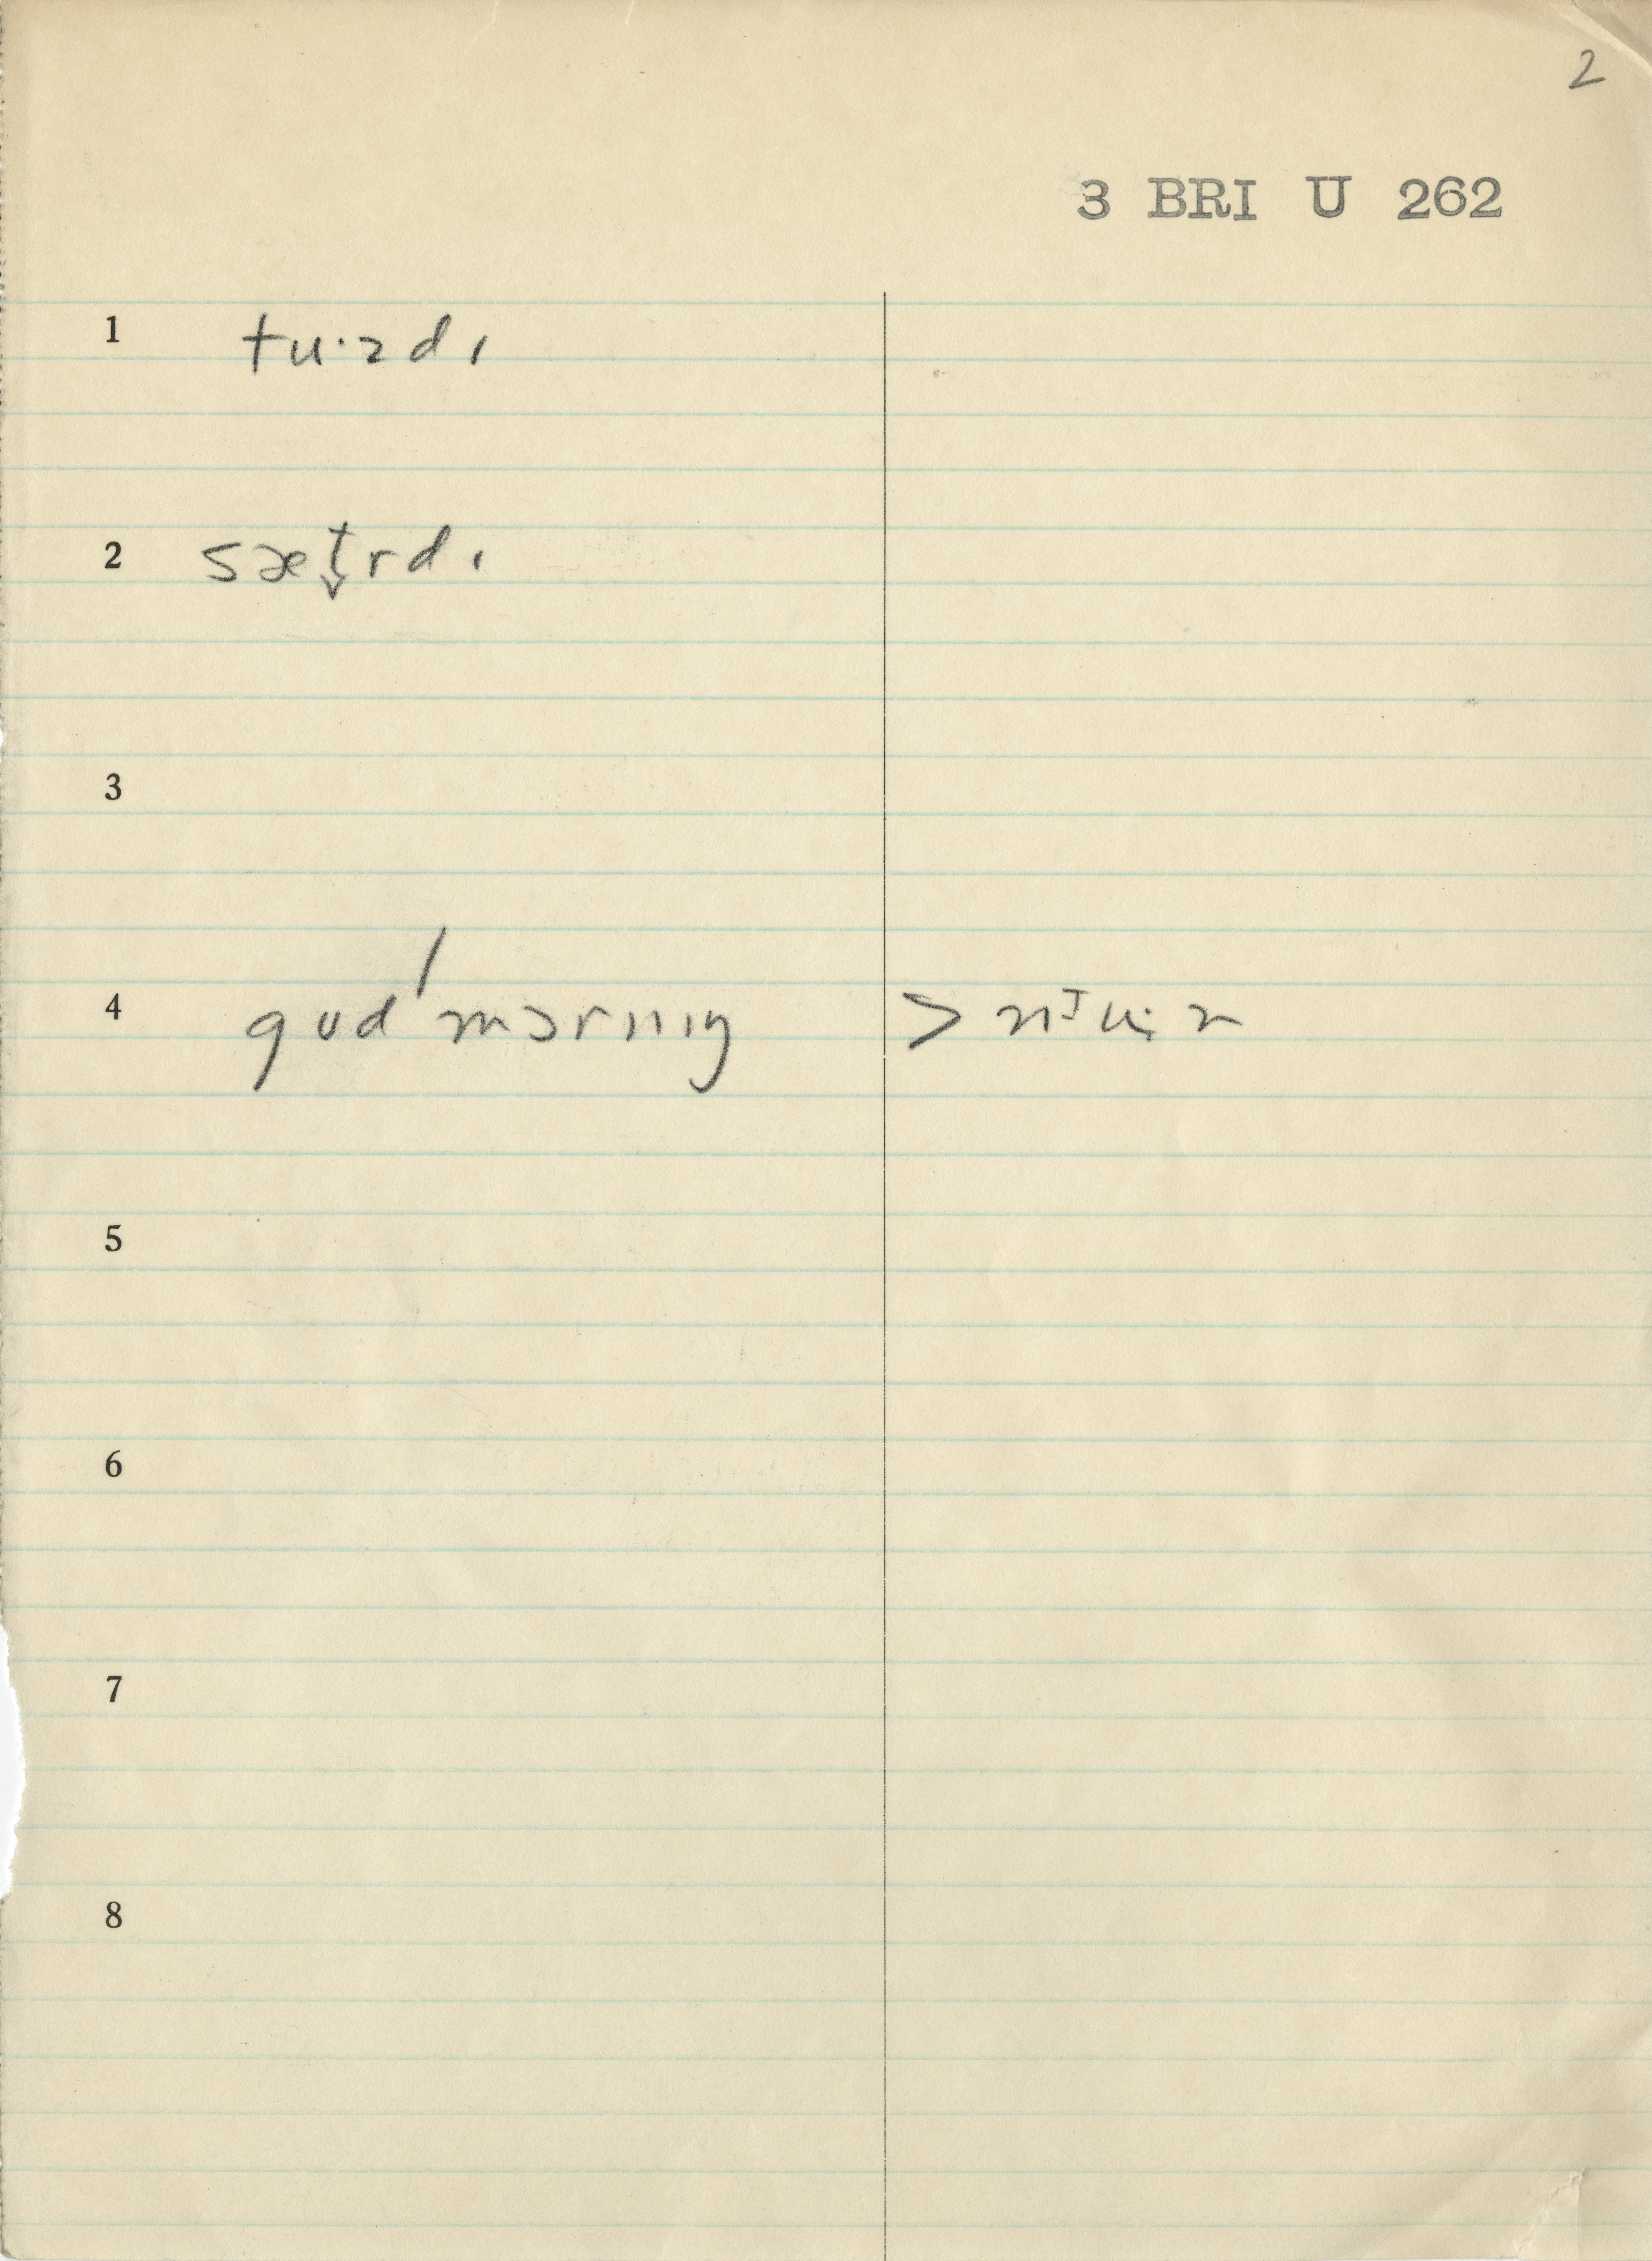 2
3 BRI U 262
1 tu·zdɪ
2 sæt̬rdɪ
3
4 gʊd ˈmɔrnɪŋ >
5
6
7
8